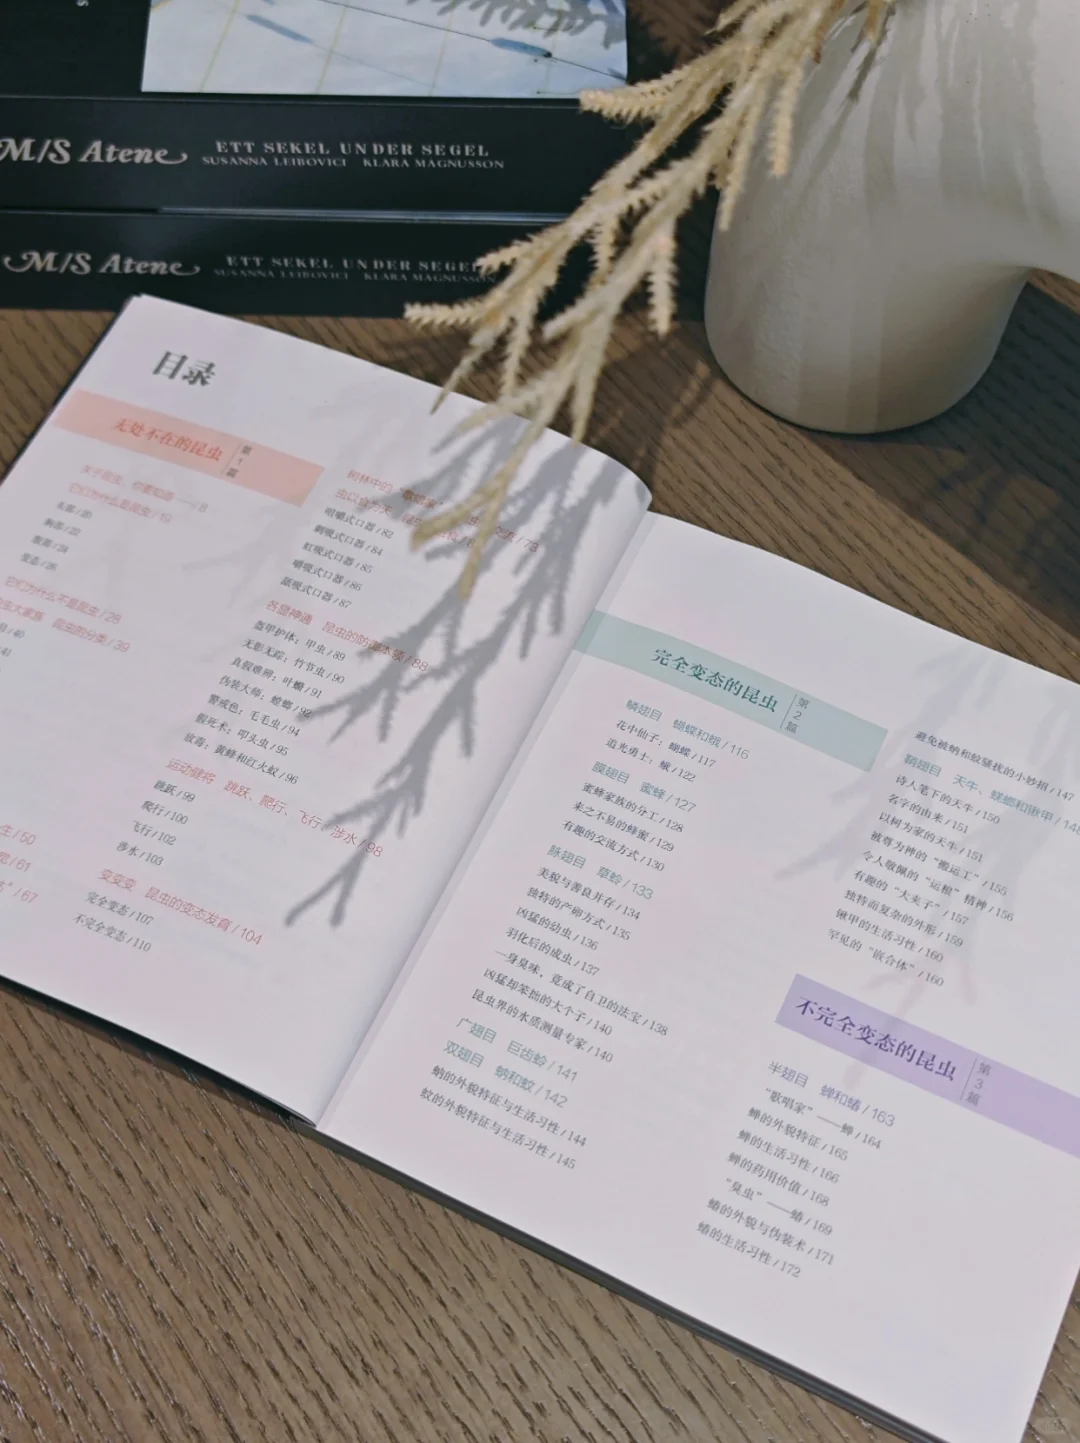 M/S Atene
ETT SEKEL UNDER SEGEL
SUSANNA LEIBOVICI KLARA MAGNUSSON
M/S Atene
ETT SEKEL UNDER SEGEL
SUSANNA LEIBOVICI KLARA MAGNUSSON
目录
无处不在的昆虫 第1篇
关于昆虫，你要知道——/8
它们为什么是昆虫/19
头部/20
胸部/22
腹部/24
变态/26
它们为什么不是昆虫/28
虫大家族 昆虫的分类/39
/40
/41
生/50
/61
/67
/73
虫以食为天
咀嚼式口器/82
刺吸式口器/84
虹吸式口器/85
嚼吸式口器/86
舐吸式口器/87
各显神通 昆虫的防御本领/88
盔甲护体：甲虫/89
无影无踪：竹节虫/90
真假难辨：叶䗛/91
伪装大师：螳螂/92
警戒色：毛毛虫/94
假死术：叩头虫/95
放毒：黄蜂和红火蚁/96
运动健将 跳跃、爬行、飞行、涉水/98
跳跃/99
爬行/100
飞行/102
涉水/103
变变变 昆虫的变态发育/104
完全变态/107
不完全变态/110
完全变态的昆虫 第2篇
鳞翅目 蝴蝶和蛾/116
花中仙子：蝴蝶/117
追光勇士：蛾/122
膜翅目 蜜蜂/127
蜜蜂家族的分工/128
来之不易的蜂蜜/129
有趣的交流方式/130
脉翅目 草蛉/133
美貌与善良并存/134
独特的产卵方式/135
凶猛的幼虫/136
羽化后的成虫/137
一身臭味，竟成了自卫的法宝/138
凶猛却笨拙的大个子/140
昆虫界的水质测量专家/140
广翅目 巨齿蛉/141
双翅目 蚋和蚊/142
蚋的外貌特征与生活习性/144
蚊的外貌特征与生活习性/145
避免被蚋和蚊骚扰的小妙招/147
鞘翅目 天牛、蜣螂和锹甲/148
诗人笔下的天牛/150
名字的由来/151
以树为家的天牛/151
被尊为神的“搬运工”/155
令人敬佩的“运粮”精神/156
有趣的“大夹子”/157
独特而复杂的外形/159
锹甲的生活习性/160
罕见的“嵌合体”/160
不完全变态的昆虫 第3篇
半翅目 蝉和蝽/163
“歌唱家”——蝉/164
蝉的外貌特征/165
蝉的生活习性/166
蝉的药用价值/168
“臭虫”——蝽/169
蝽的外貌与伪装术/171
蝽的生活习性/172